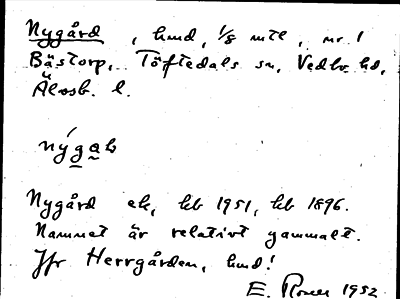 Nygård, hmd, 1/8 mtl, nr 1
Bästorp, Töftedals sn, Vedbo hd,
Älvsb. l.
nýgaɒ
Nygård ek, kb 1951, kb 1896.
Namnet är relativt gammalt.
Jfr Herrgården, hmd!
E. 1952